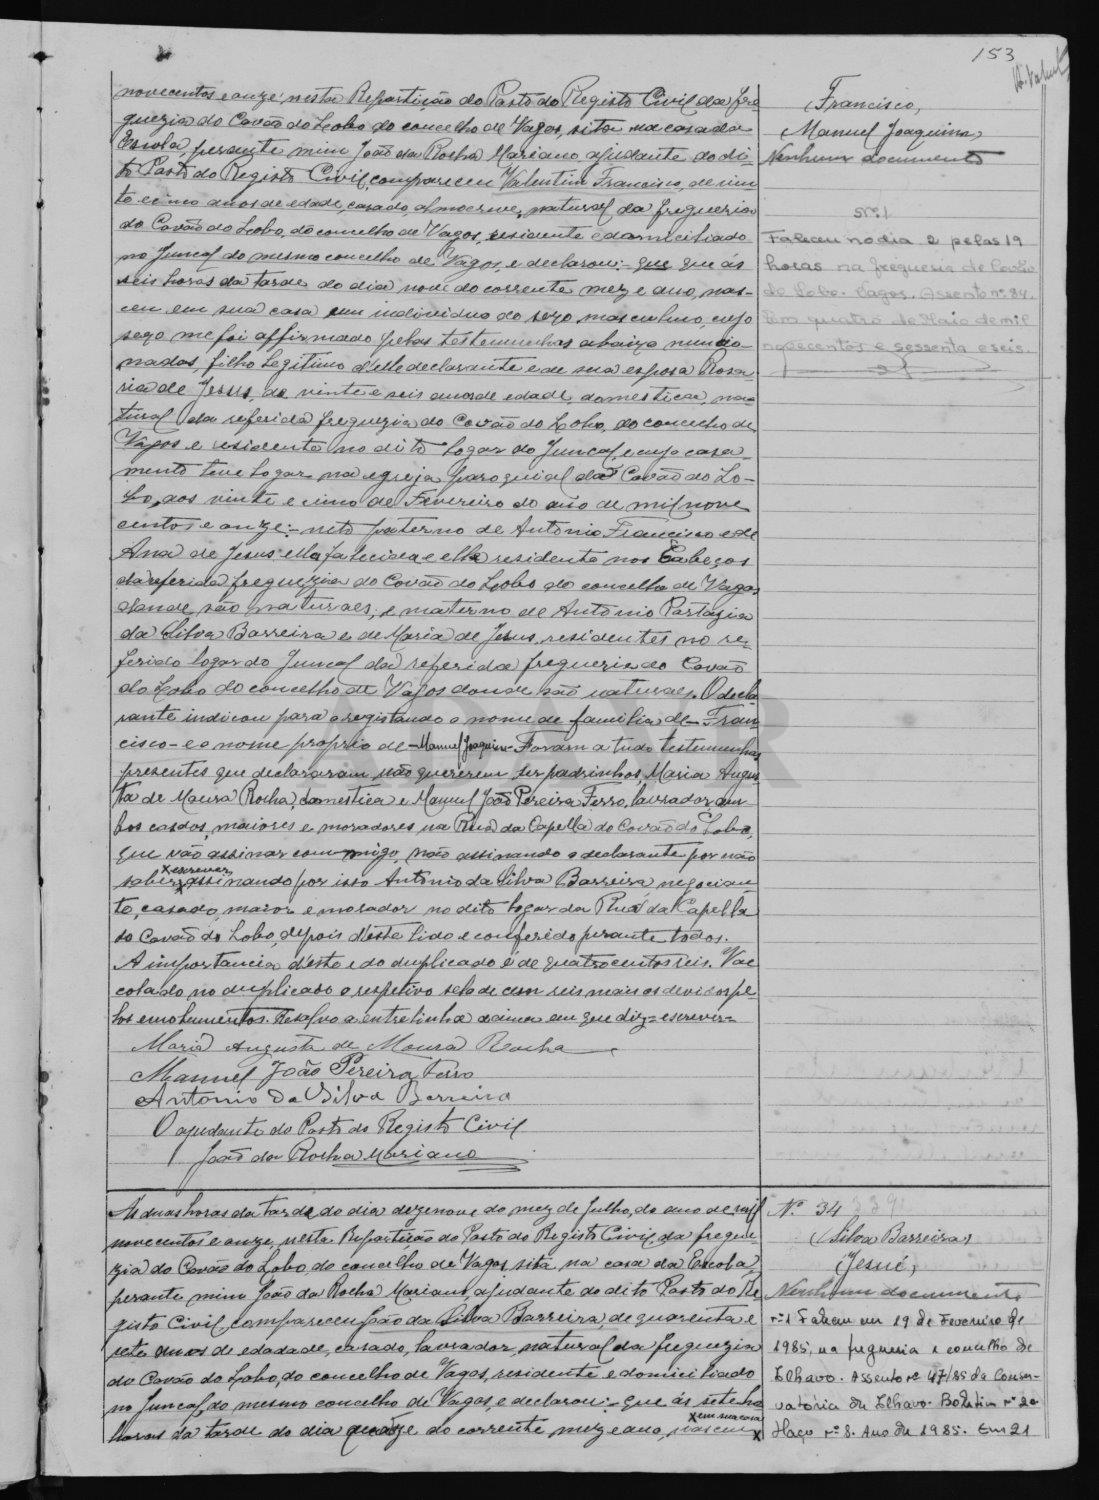 153
novecentos e onze, nesta Repartição do Posto do Registo Civil da fre-
guezia do Covão do Lobo do concelho de Vagos, sita na casa da
Escola, perante mim João da Rocha Mariano, ajudante do di-
to Posto do Registo Civil, compareceu Valentim Francisco, de vin-
te e cinco anos de edade, casado, almocreve, natural da freguezia
do Covão do Lobo, do concelho de Vagos, residente e domiciliado
no Juncal do mesmo concelho de Vagos, e declarou:- que que ás
seis horas da tarde do dia nove do corrente mez e ano, nas-
ceu em sua casa um individuo do sexo masculino, cujo
sexo me foi affirmado pelas testemunhas abaixo mencio-
nadas, filho legitimo d'elle declarante e de sua esposa Rosa-
ria de Jesus, de vinte e seis anos de edade, domestica, na-
tural da referida freguezia do Covão do Lobo, do concelho de
Vagos e residente no dito logar do Juncal, e cujo casa-
mento teve logar na egreja paroquial da Covão do Lo-
bo, aos vinte e cinco de Fevereiro do ano de mil nove
centos e onze:- neto paterno de Antonio Francisco e de
Ana de Jesus, ella falecida e elle residente nos Cabeços
da referida freguezia do Covão do Lobo do concelho de Vagos
donde são naturaes, e materno de Antonio Pastasia
da Silva Barreira e de Maria de Jesus, residentes no re-
ferido logar do Juncal da referida freguezia do Covão
do Lobo do concelho de Vagos donde são naturaes. O decla
rante indicou para o registando o nome de familia de - Fran
cisco - e o nome proprio de - Manuel Joaquim - Foram a tudo testemunhas
presentes que declararam não quererem ser padrinhos, Maria Augus
ta de Moura Rocha, domestica e Manuel João Pereira Ferro, lavrador, am-
bos casdos, maiores e moradores, na Rua da Capella do Covão do Lobo,
que vão assinar com migo, não assinando o declarante por não
saber x escrever x assinando por isso Antonio da Silva Barreira, negocian
te, casado, maior e morador no dito logar da Rua da Capella
do Covão do Lobo, depois d'este lido e conferido perante todos.
A importancia d'este e do duplicado é de quatrocentos reis. Vae
colado no duplicado o respetivo selo de cem reis mais os devidos pe-
los emolumentos. Resalvo a entrelinha acima em que diz = escrever =
Maria Augusta de Moura Rocha
Manuel João Pereira Ferro
Antonio da Silva Barreira
O ajudante do Posto do Registo Civil
João da Rocha Mariano
Francisco,
Manuel Joaquim,
Nenhum documento
Nº 1
Faleceu no dia 2 pelas 19
horas na freguesia de Covão
do Lobo. Vagos. Assento nº 84.
Em quatro de Maio de mil
novecentos e sessenta e seis.
Ás duas horas da tarde do dia dezenove do mez de Julho, do ano de mil
novecentos e onze, nesta Repartição do Posto do Registo Civil da fregue-
zia do Covão do Lobo, do concelho de Vagos, sita na casa da Escola,
perante mim João da Rocha Mariano, ajudante do dito Posto do Re
gisto Civil, compareceu João da Silva Barreira, de quarenta e
sete anos de edadade, casado, lavrador, natural da freguezia
do Covão do Lobo, do concelho de Vagos, residente e domiciliado
no Juncal, do mesmo concelho de Vagos e declarou:- que ás sete ho
horas da tarde do dia quatorze do corrente mez e ano, nasceu x em sua casa x
Nº 34 339
Silva Barreira,
Jesué,
Nenhum documento
nº 1 Faleceu em 19 de Fevereiro de
1985, na freguesia e concelho de
Ílhavo. Assento nº 47/85 da Conser-
vatória de Ílhavo. Boletim nº 20
Maço nº 8. Ano de 1985. Em 21